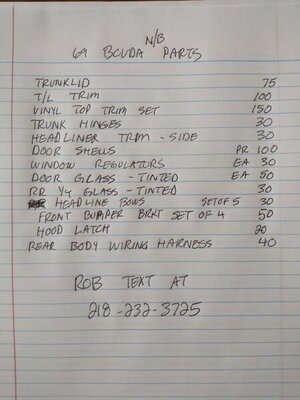 N/B
69 BCUDA PARTS
TRUNKLID 75
T/L TRIM 100
VINYL TOP TRIM SET 150
TRUNK HINGES 30
HEADLINER TRIM - SIDE 30
DOOR SHELLS PR 100
WINDOW REGULATORS EA 30
DOOR GLASS - TINTED EA 50
RD 1/4 GLASS - TINTED 30
HEADLINE BOWS SET OF 5 30
FRONT BUMPER BRKT SET OF 4 50
HOOD LATCH 20
REAR BODY WIRING HARNESS 40
ROB TEXT AT
218-232-3725